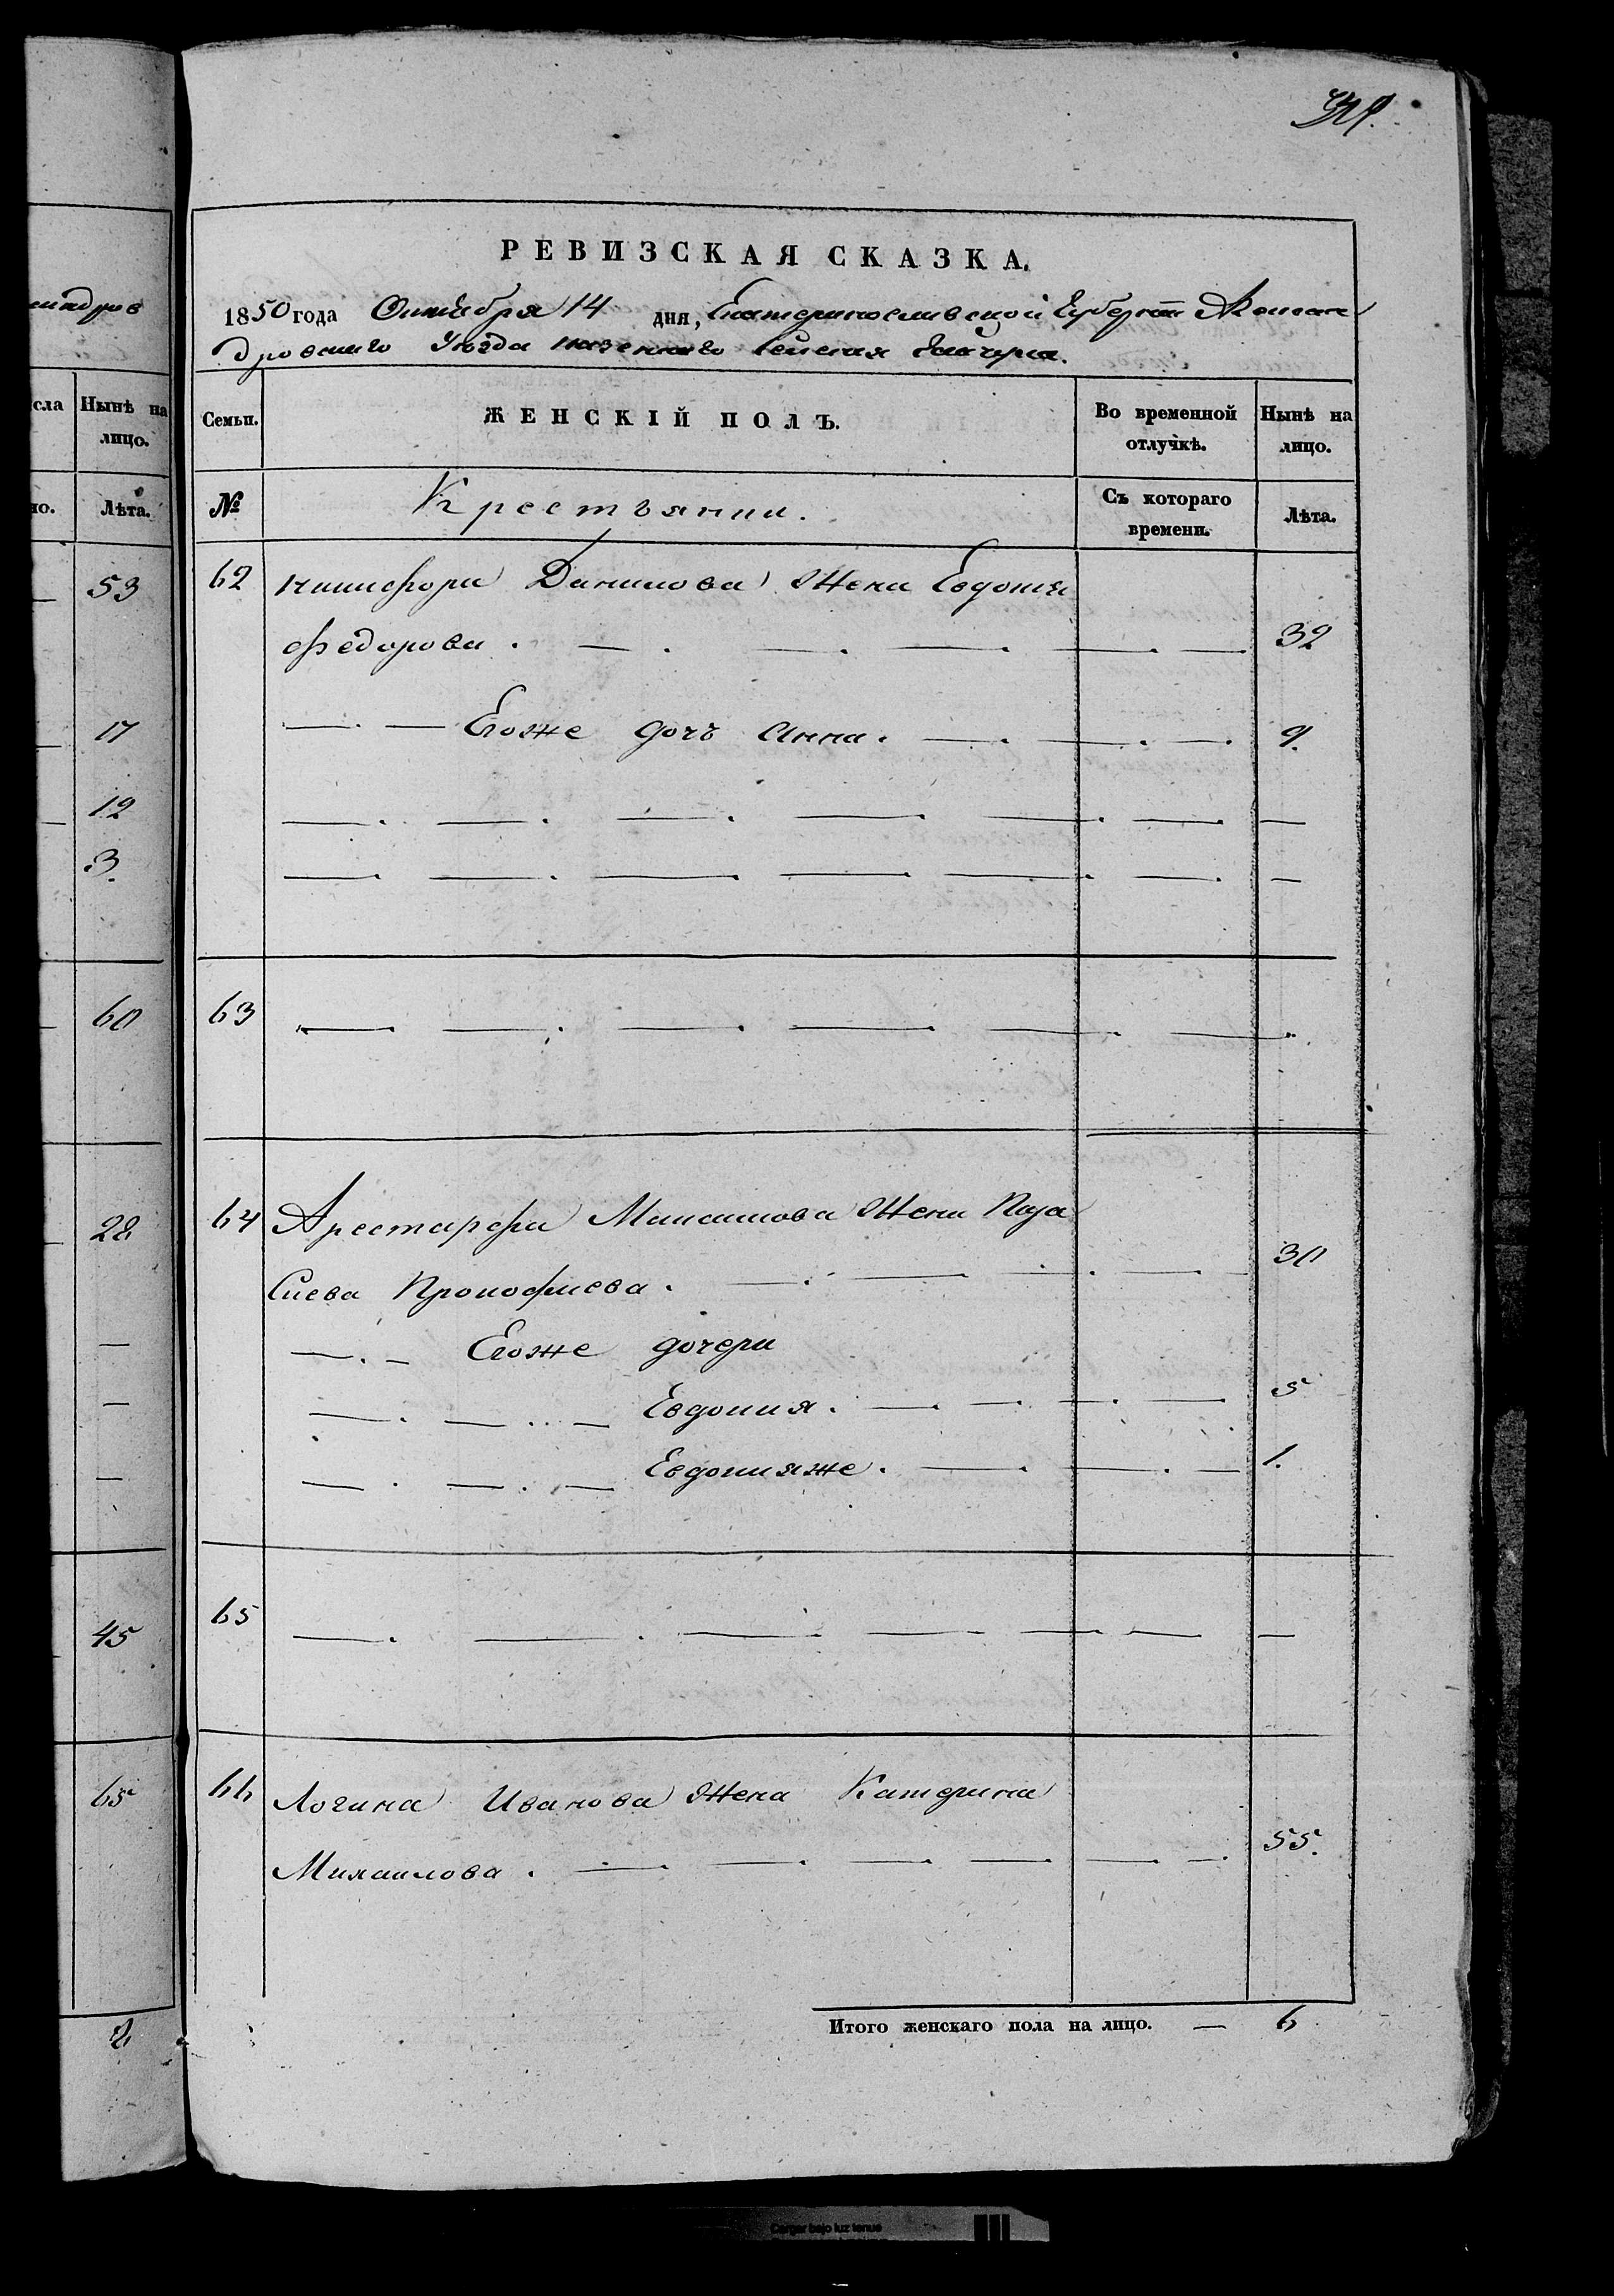 РЕВИЗСКАЯ СКАЗКА.
1850 года Октября 14 дня, Екатеринославской Губернии Алексан
дровскаго Уезда казеннаго селения
сла Нынѣ на лицо.
Семьи. ЖЕНСКІЙ ПОЛЪ. Во временной отлучкѣ. Нынѣ на лицо.
но. Лѣта.
№ Крестьянии. Съ котораго времени. Лѣта.
53
62 Никифора Данилова Жена Евдокия
Федорова. 32
17
Егоже дочь Анна. 9.
12
3.
60
63
28
64 Арестарфа Максимова Жена Пара
Сиева Прокофиева. 30
Егоже дочери
Евдокия. 5
Евдокияже. 1.
45
65
65
66 Логина Иванова Жена Катерина
Михаилова. 55.
Итого женскаго пола на лицо. — 6